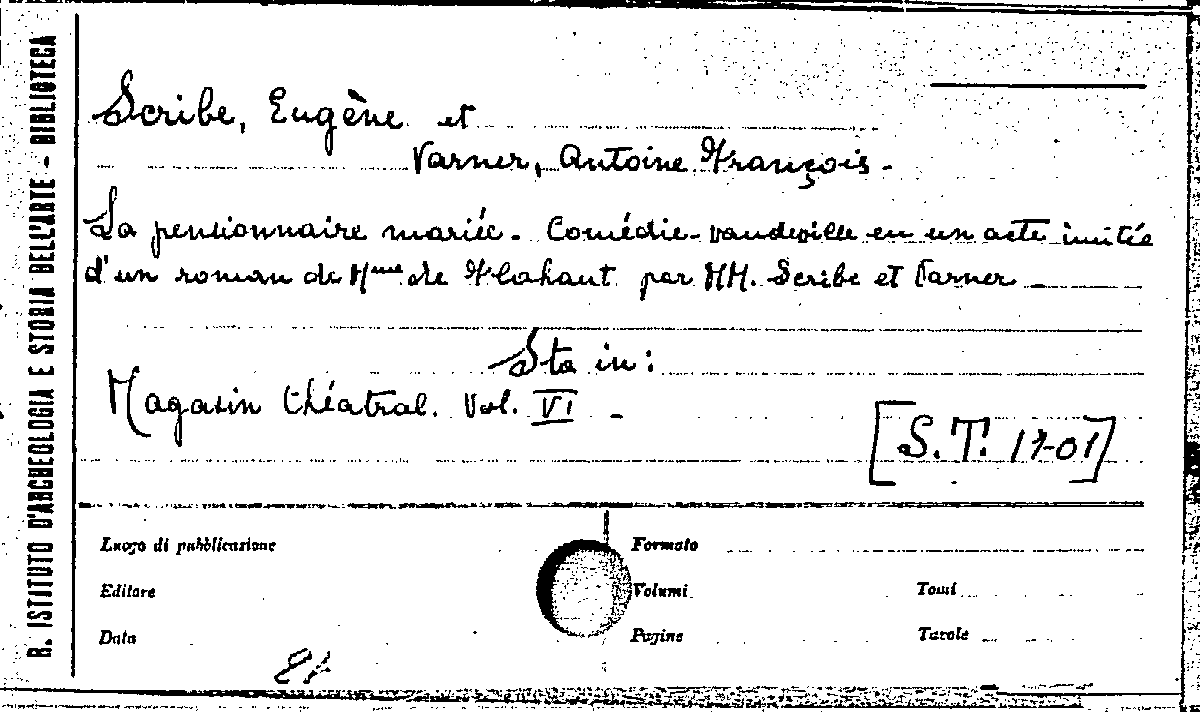 R. ISTITUTO D'ARCHEOLOGIA E STORIA DELL'ARTE - BIBLIOTECA
Scribe, Eugène et
Varner, Antoine François.
La pensionnaire mariée. Comédie-vaudeville en un acte imitée
d'un roman de Mme de Flahaut par MM. Scribe et Varner
Sta in:
Magasin théatral. Vol. VI
[S. T. 17-01]
Luogo di pubblicazione
Formato
Editore
Volumi
Tomi
Data
Pagine
Tavole